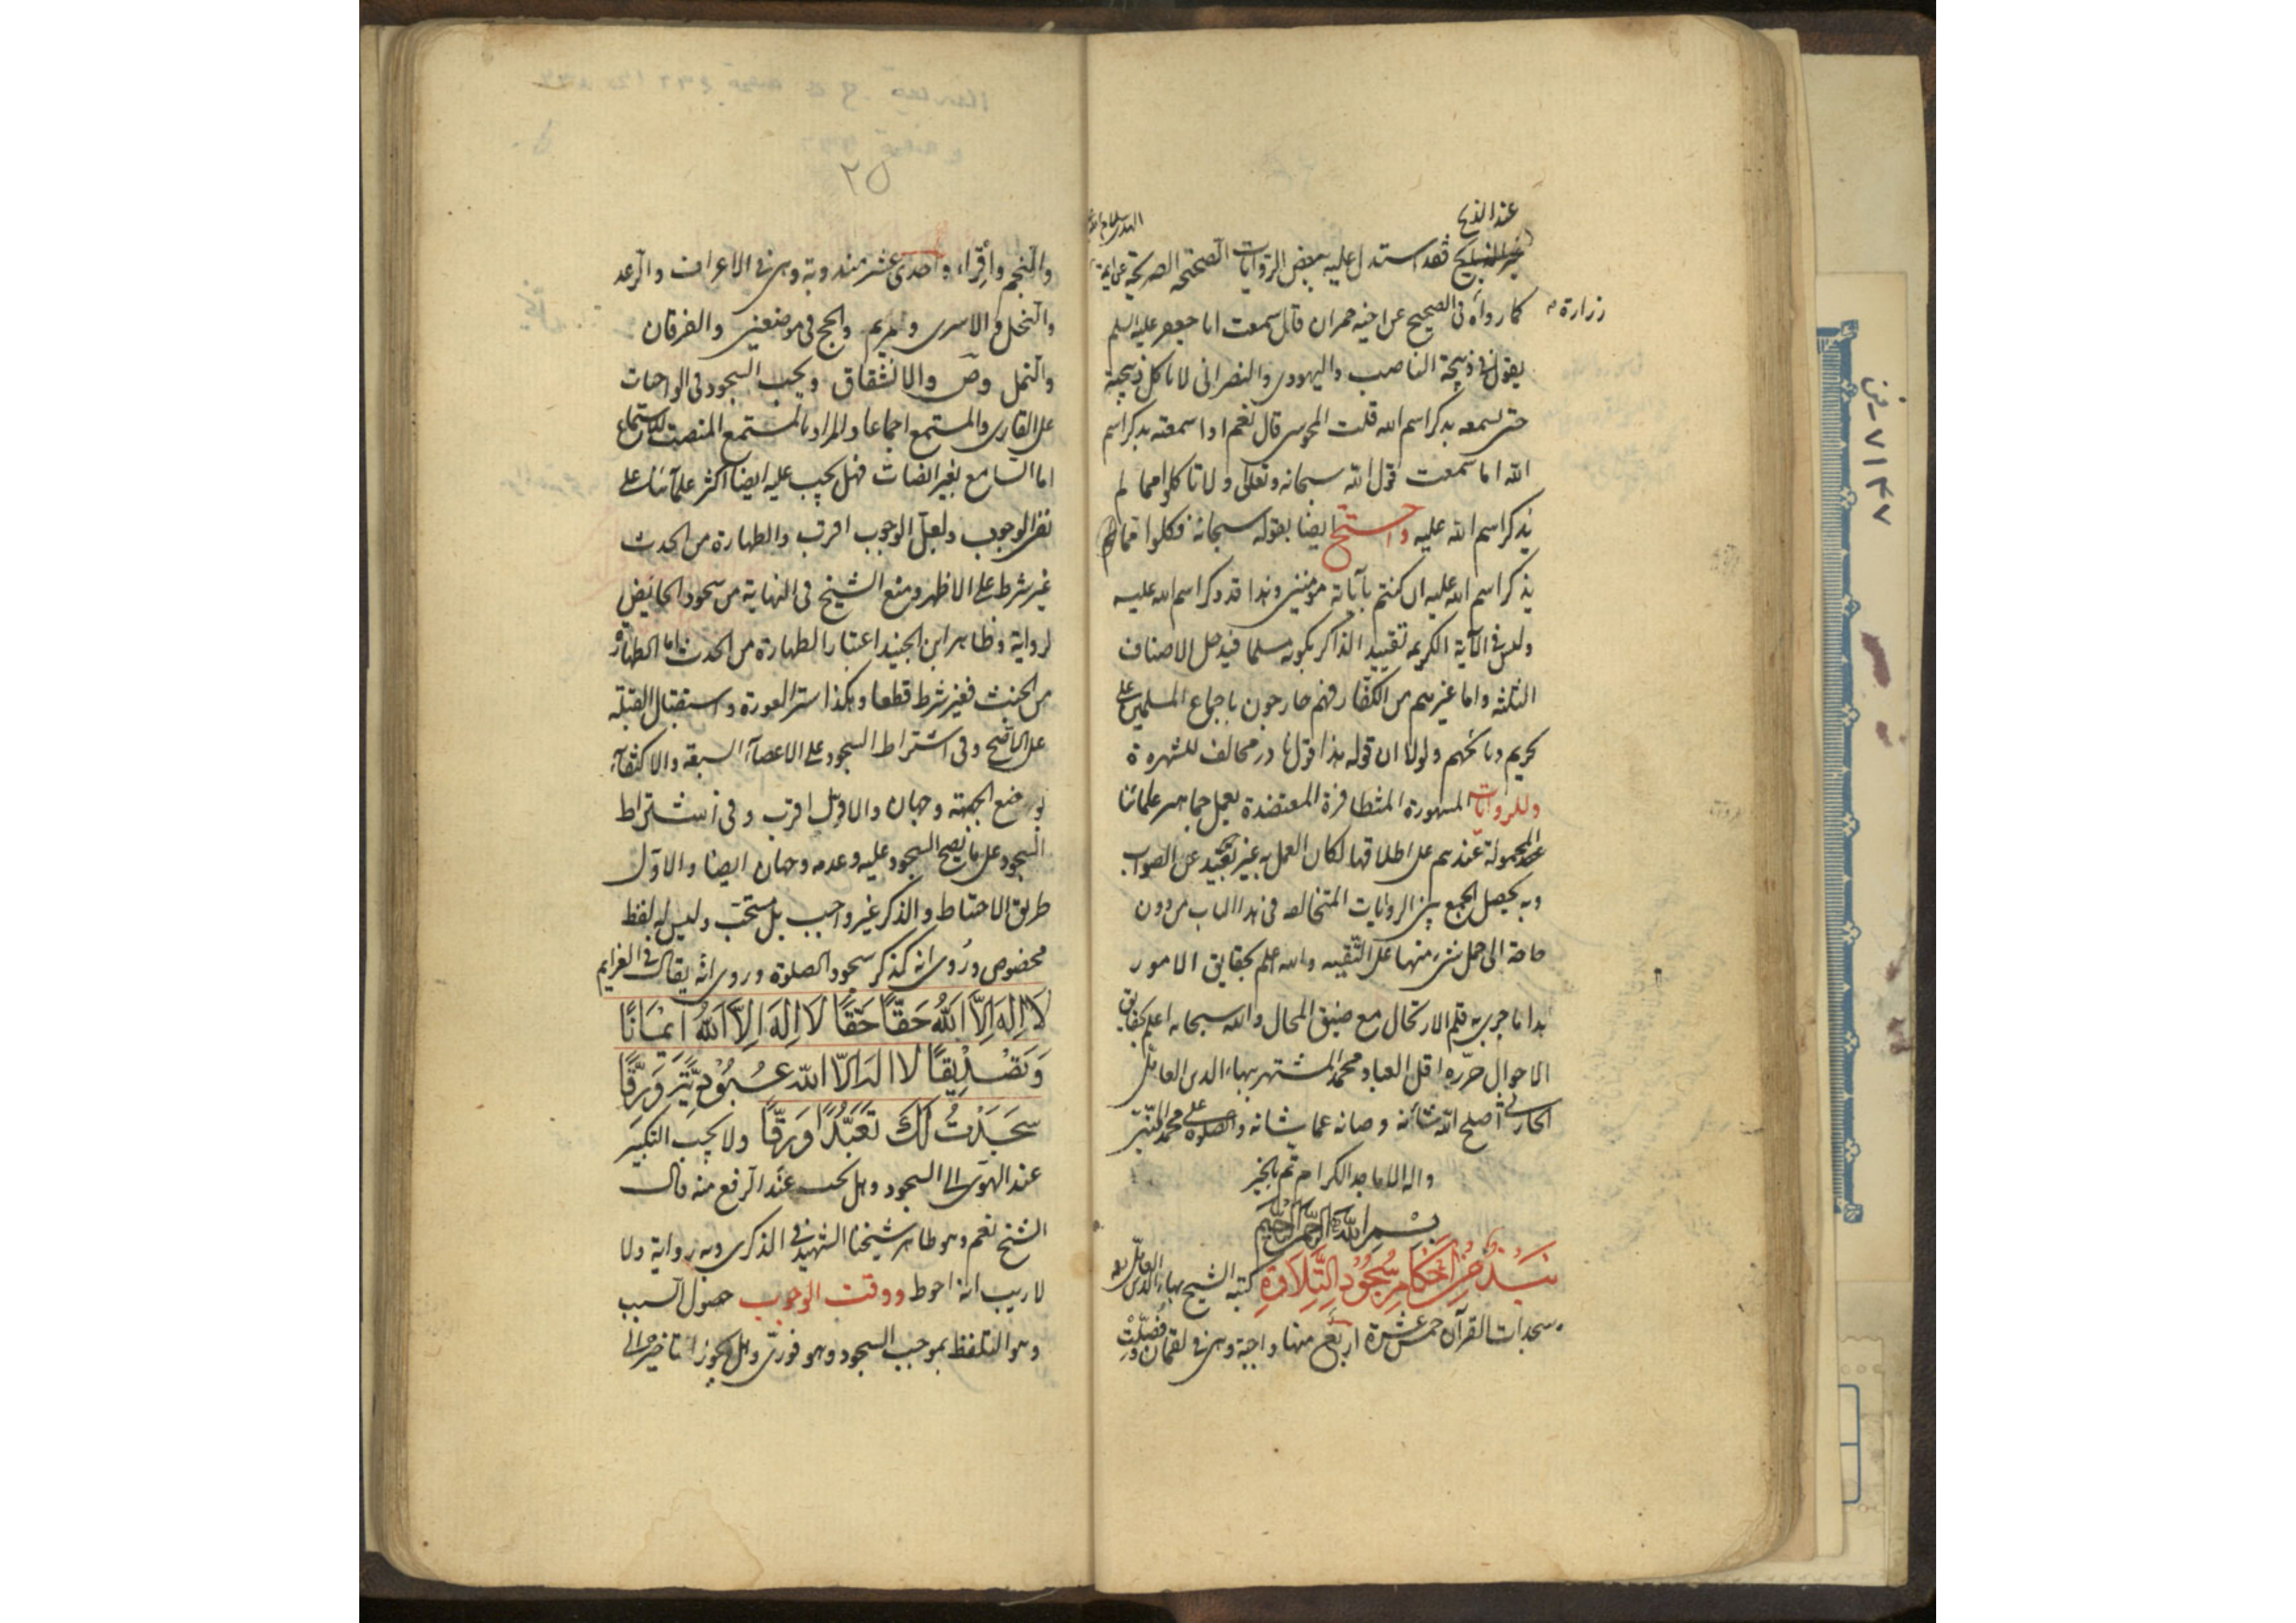 عند الذبح
فقد استدل عليه ببعض الروايات الصحيحة الصريحة عن ائمة
زرارة
كما رواه في الصحيح عن اخيه حمران قال سمعت ابا جعفر عليه السلم
يقول في ذبيحة الناصب واليهودي والنصراني لا تاكل ذبيحته
حتى تسمعه يذكر اسم الله قلت المجوسي قال نعم اذا سمعته يذكر اسم
الله اما سمعت قول الله سبحانه وتعالى ولا تاكلوا مما لم
يذكر اسم الله عليه واحتج ايضا بقوله سبحانه فكلوا مما
يذكر اسم الله عليه ان كنتم بآياته مؤمنين وهذا قد ذكر اسم الله عليه
وليس في الآية الكريمه تقييد الذاكر بكونه مسلما فيدخل الاصناف
الثلثه واما غيرهم من الكفار فهم خارجون باجماع المسلمين على
تحريم ذبائحهم ولولا ان قوله هذا قول نادر مخالف للشهرة
وللروايات المشهورة المتظافرة المعتضدة بعمل جماهير علمائنا
المحمولة عندهم على اطلاقها لكان العمل به غير بعيد عن الصواب
وبه يحصل الجمع بين الروايات المتخالفه في هذا الباب من دون
حاجة الى حمل شيء منها على التقيه والله اعلم بحقايق الامور
هذا ما جرى به قلم الارتجال مع ضيق المجال والله سبحانه اعلم بحقايق
الاحوال حرره اقل العباد محمد المشتهر ببهاء الدين العاملي
الحارثي اصلح الله شأنه وصانه عما شانه والصلوة على محمد
واله الاماجد الكرام تم بالخير
بسم الله الرحمن الرحيم
نبذ من احكام سجود التلاوة كتبه الشيخ بهاء الدين العاملي
سجدات القرآن خمس عشرة اربع منها واجبة وهي في لقمان وفصلت
٢٥
والنجم واقرا، واحدى عشر مندوبة وهي في الاعراف والرعد
والنحل والاسرى ومريم والحج في موضعين والفرقان
والنمل وص والانشقاق ويجب السجود في الواجبات
على القاري والمستمع اجماعا والمراد بالمستمع المنصت للاستماع
اما السامع بغير انصات فهل يجب عليه ايضا اكثر علمائنا على
نفي الوجوب ولعل الوجوب اقرب والطهارة من الحدث
غير شرط على الاظهر ومنع الشيخ في النهاية من سجود الحائض
لرواية وظاهر ابن الجنيد اعتبار الطهارة من الحدث اما الطهارة
من الخبث فغير شرط قطعا وكذا ستر العورة واستقبال القبلة
على الاصح وفي اشتراط السجود على الاعضاء السبعة والاكتفاء
بوضع الجبهة وجهان والاول اقرب وفي اشتراط
السجود على ما يصح السجود عليه وعدمه وجهان ايضا والاول
طريق الاحتياط والذكر غير واجب بل مستحب وليس له لفظ
مخصوص وروى انه كذكر سجود الصلوة وروى انه يقال في العزايم
لا اله الا الله حقا حقا لا اله الا الله ايمانا
وتصديقا لا اله الا الله عبودية ورقا
سجدت لك تعبدا ورقا ولا يجب التكبير
عند الهوي الى السجود وهل يجب عند الرفع منه قال
الشيخ نعم وهو ظاهر شيخنا الشهيد في الذكرى وبه رواية ولا
لا ريب انه احوط ووقت الوجوب حصول السبب
وهو التلفظ بموجب السجود وهو فوري وهل يجوز تاخيره الى
٧١٣٧